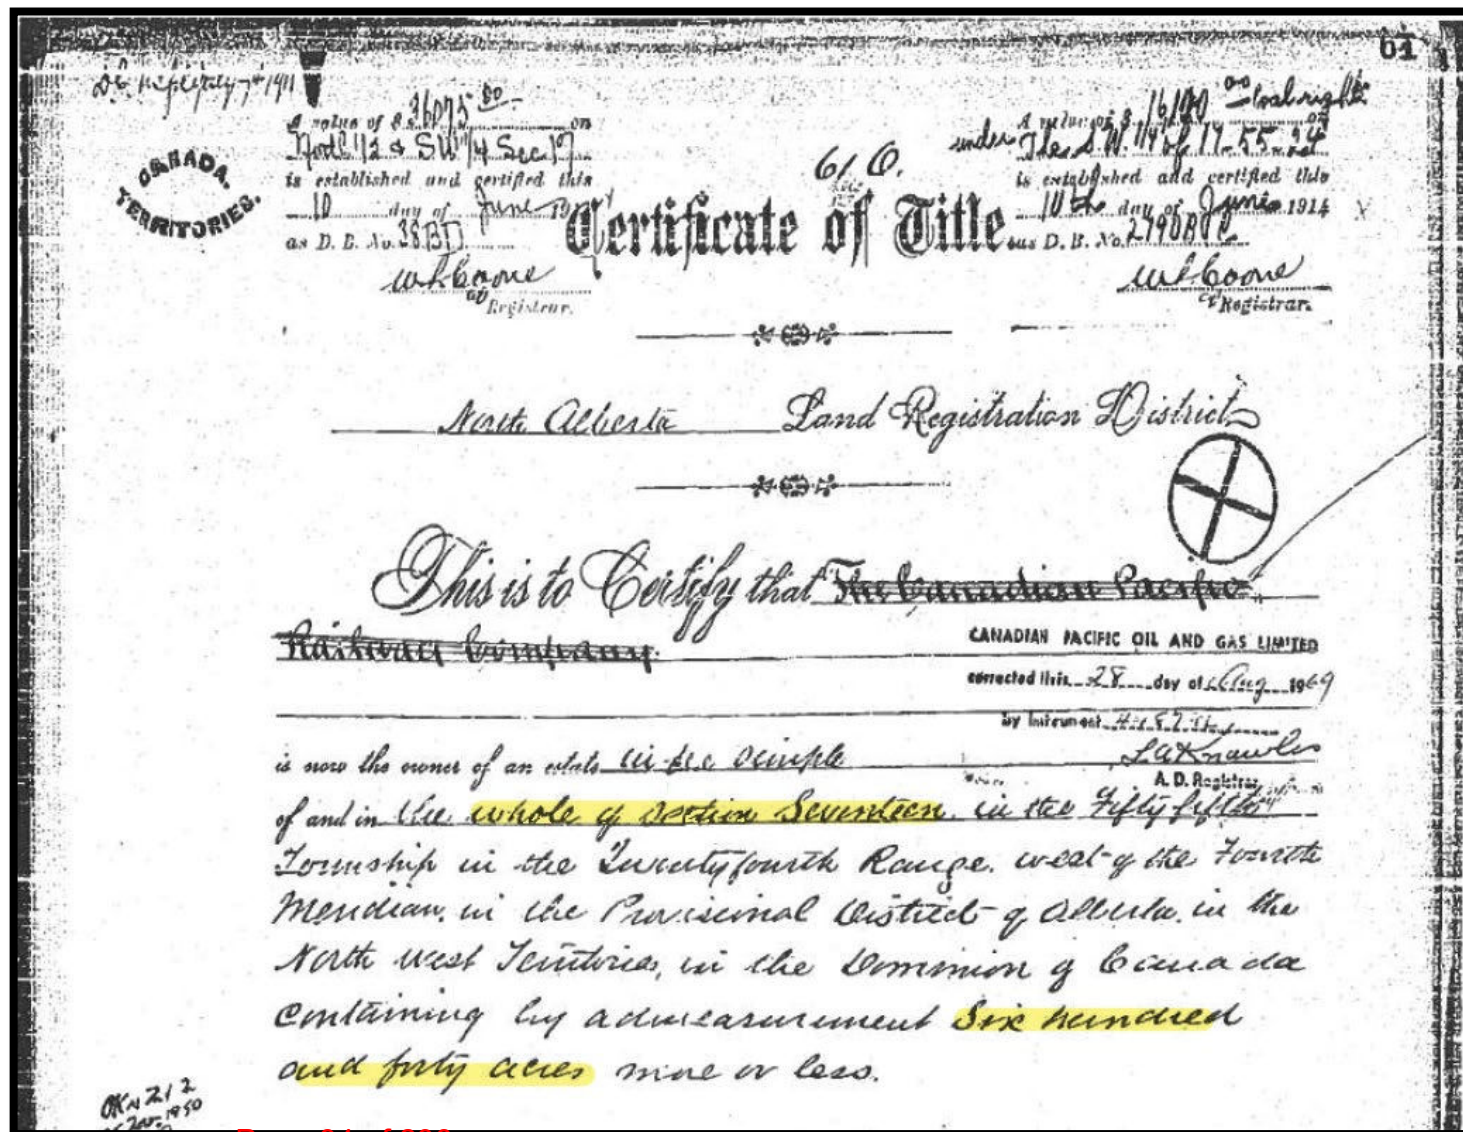 01
1911
CANADA.
TERRITORIES.
A value of $ 36075.00 on
North 1/2 & SW 1/4 Sec 17
is established and certified this
10 day of June 19
as D. B. No. 38BD
Registrar.
61 O.
Certificate of Title
A value of $ 16100 00 coal rights on
under The S.W. 1/4 of 17-55-24
is established and certified this
10th day of June 1914
as D. B. No.
Registrar.
North Alberta Land Registration District
This is to Certify that The Canadian Pacific
Railway Company.
CANADIAN PACIFIC OIL AND GAS LIMITED
corrected this 28 day of Aug 1969
by Instrument
A. D. Registrar
is now the owner of an estate in fee simple
of and in the whole of section Seventeen in the Fifty fifth
Township in the Twenty fourth Range west of the Fourth
Meridian in the Provisional District of Alberta in the
North west Territories, in the Dominion of Canada
containing by admeasurement Six hundred
and forty acres more or less.
1950